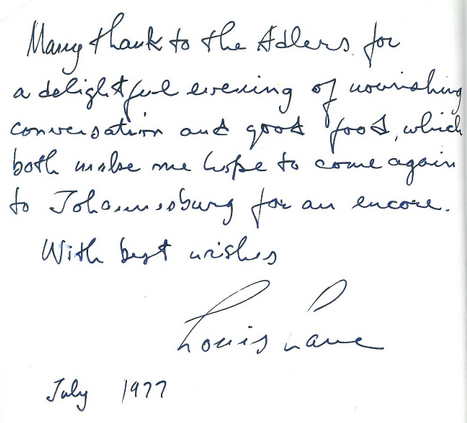 Many thank to the Adlers for
a delightful evening of nourishing
conversation and good food, which
both make me hope to come again
to Johannesburg for an encore.
With best wishes
Louis Lane
July 1977